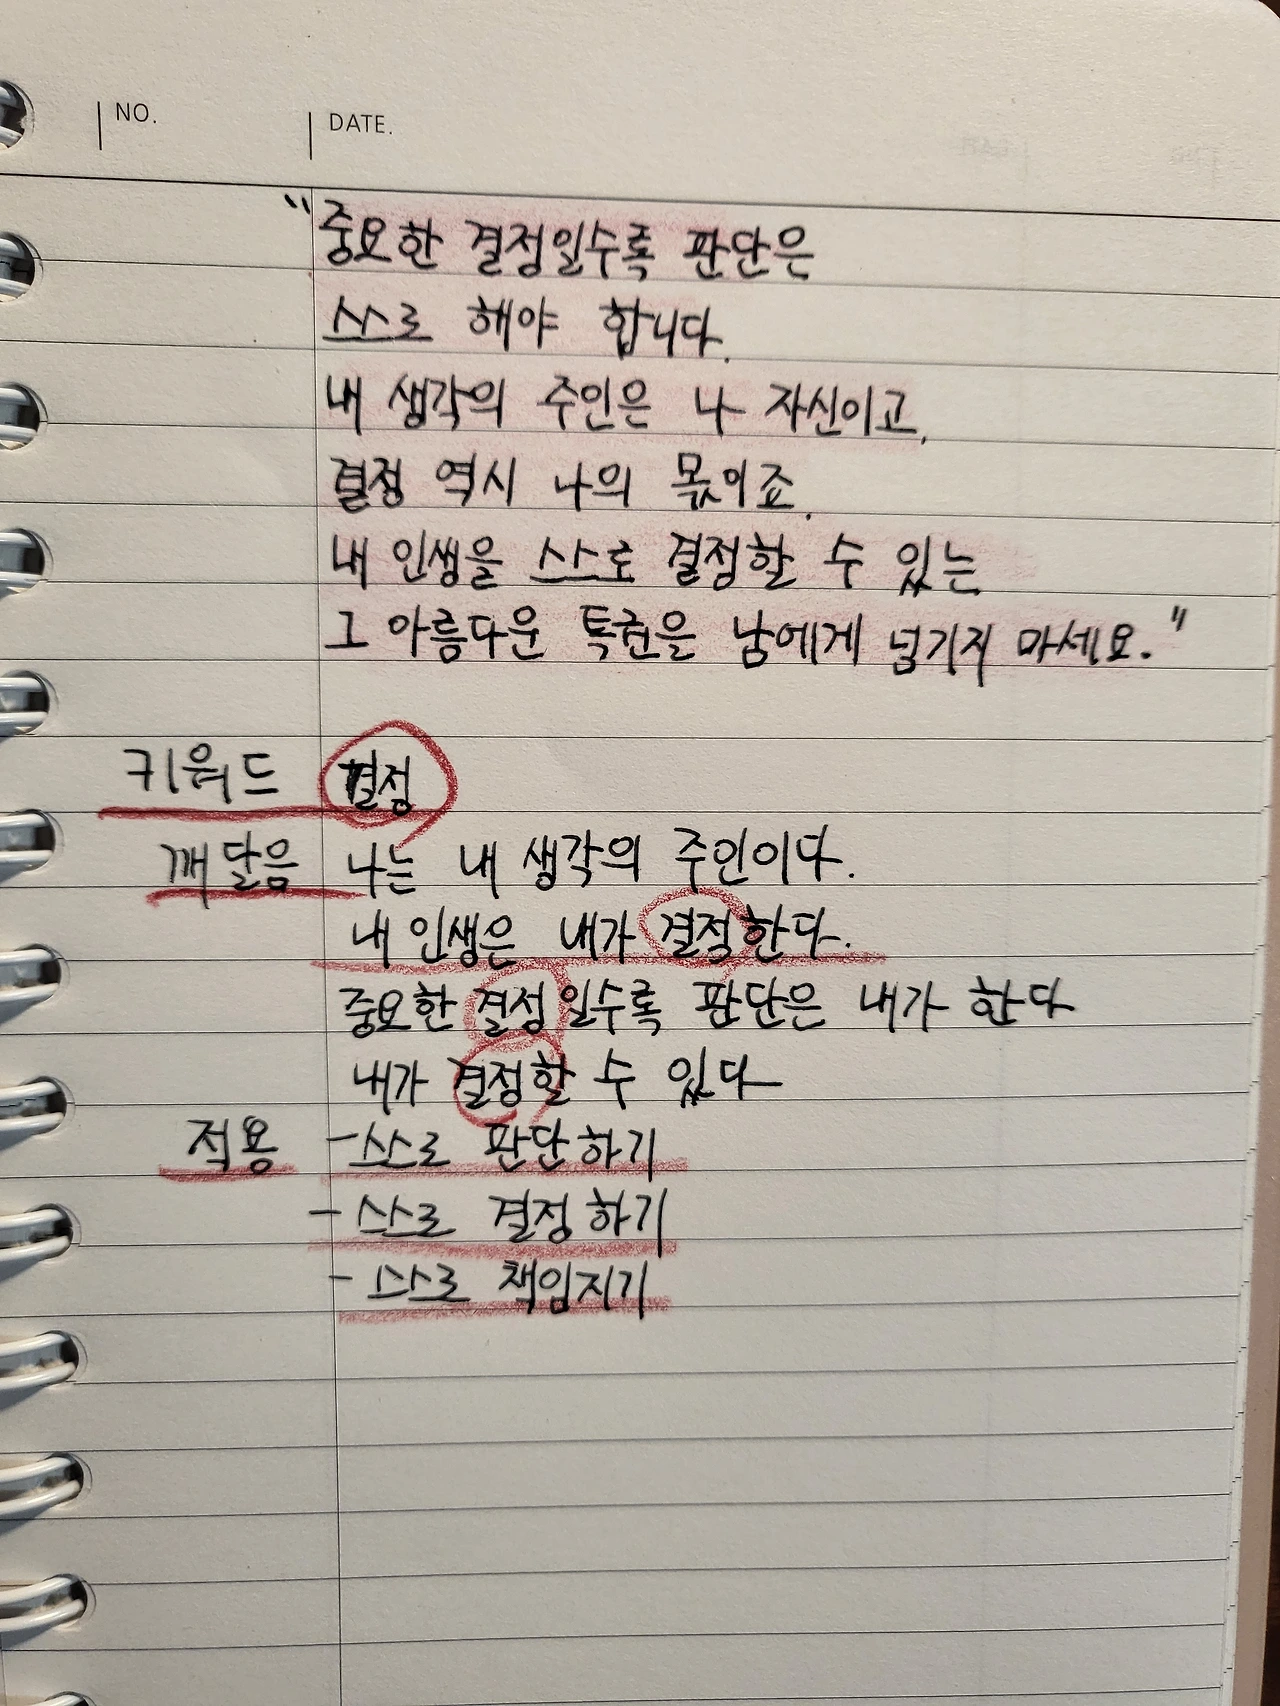 NO. DATE.
"중요한 결정일수록 판단은
스스로 해야 합니다.
내 생각의 주인은 나 자신이고,
결정 역시 나의 몫이죠.
내 인생을 스스로 결정할 수 있는
그 아름다운 특권을 남에게 넘기지 마세요."
키워드 결정
깨달음 나는 내 생각의 주인이다.
내 인생은 내가 결정한다.
중요한 결정일수록 판단은 내가 한다
내가 결정할 수 있다
적용 - 스스로 판단하기
- 스스로 결정하기
- 스스로 책임지기